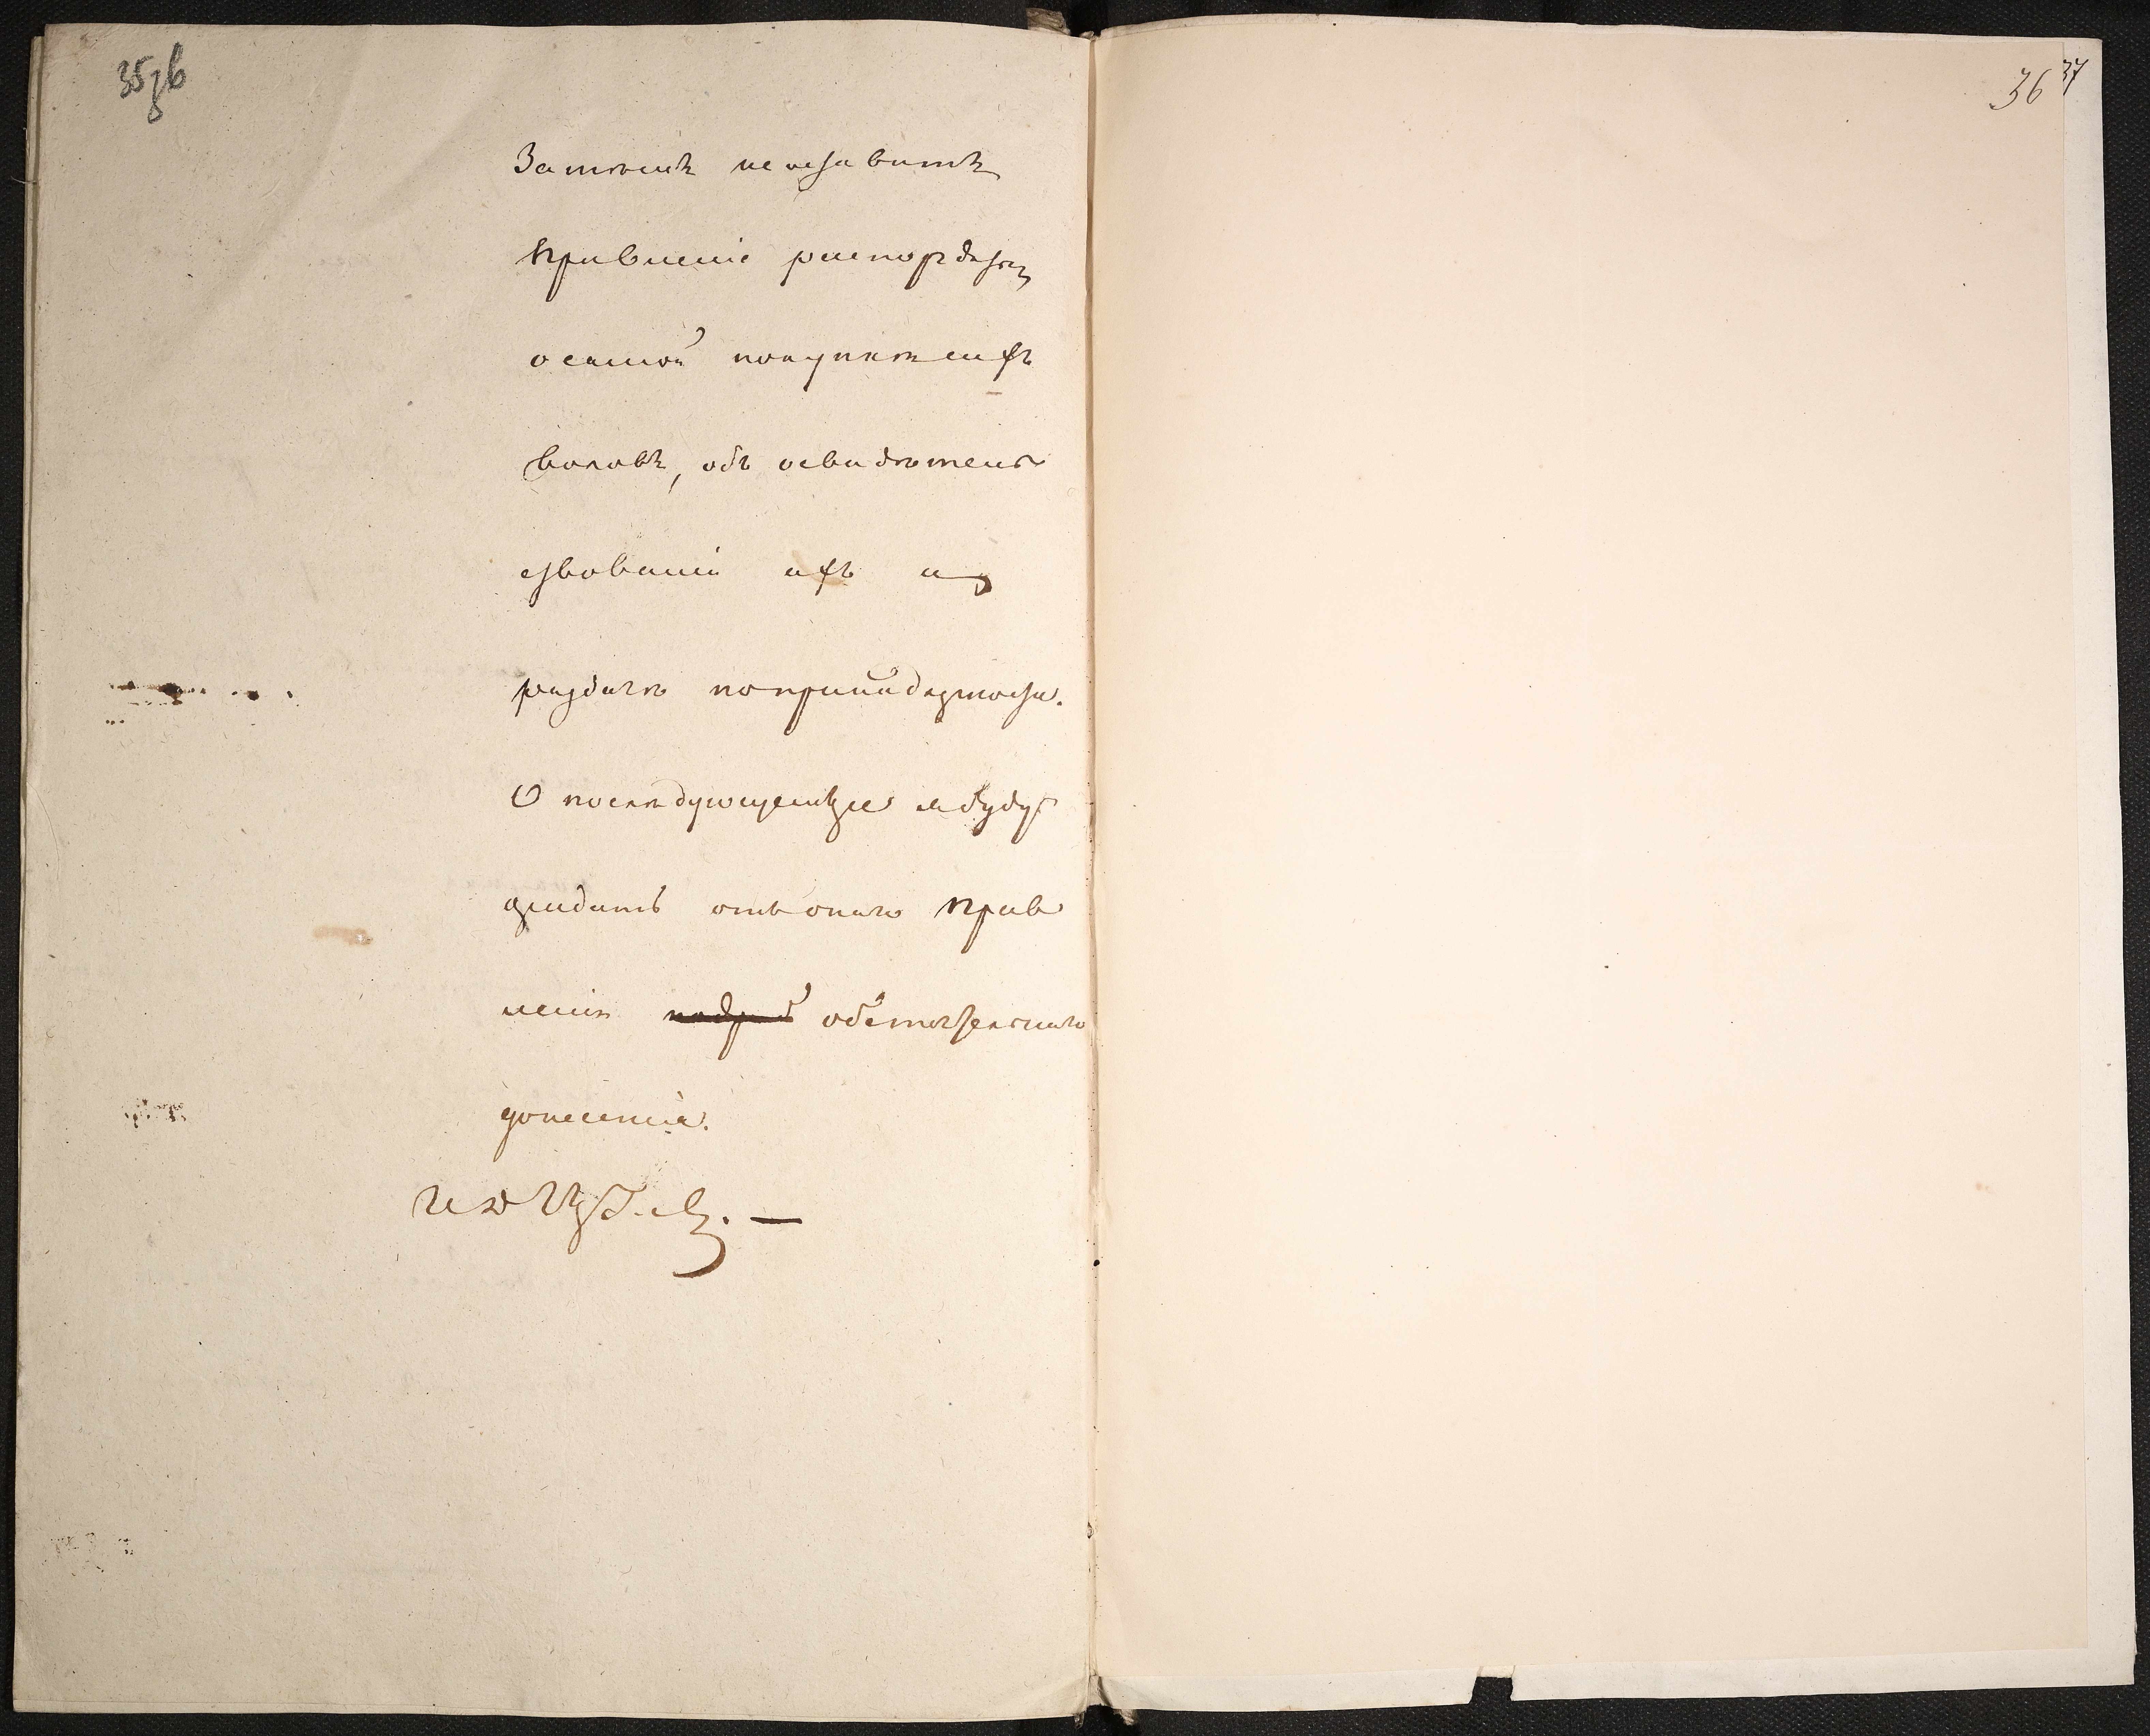 35зв
36 37
Затемъ не оставитъ
Правленіе распорядит
о самой покупке сихъ
воловъ, объ освидетель
ствованіи ихъ и
раздаче по принадлежности.
О последующемъ же я буду
ожидать отъ онаго Прав
ленія обстоятельнаго
донесенія.